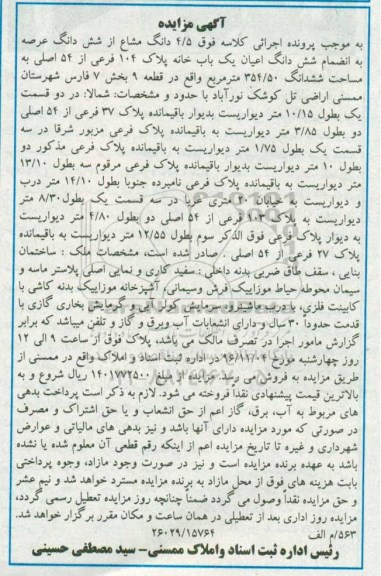 آگهی مزایده
به موجب پرونده اجرائی کلاسه فوق ۴/۵ دانگ مشاع از شش دانگ عرصه
به انضمام شش دانگ اعیان یک باب خانه پلاک ۱۰۴ فرعی از ۵۴ اصلی به
مساحت ششدانگ ۳۵۴/۵۰ مترمربع واقع در قطعه ۹ بخش ۷ فارس شهرستان
ممسنی اراضی تل کوشک نورآباد با حدود و مشخصات: شمالا: در دو قسمت
یک بطول ۱۰/۱۵ متر دیواریست بدیوار باقیمانده پلاک ۳۷ فرعی از ۵۴ اصلی
دو بطول ۳/۸۵ متر دیواریست به باقیمانده پلاک فرعی مزبور شرقا در سه
قسمت یک بطول ۱/۷۵ متر دیواریست به باقیمانده پلاک فرعی مذکور دو
بطول ۱۰ متر دیواریست بدیوار باقیمانده پلاک فرعی مرقوم سه بطول ۱۳/۱۰
متر دیواریست به باقیمانده پلاک فرعی نامبرده جنوبا بطول ۱۴/۱۰ متر درب
و دیواریست به خیابان ۲۰ متری غربا در سه قسمت یک بطول ۸/۳۰ متر
دیواریست به پلاک ۱۰۳ فرعی از ۵۴ اصلی دو بطول ۴/۸۰ متر دیواریست
به دیوار پلاک فرعی فوق الذکر سوم بطول ۱۲/۵۵ متر دیواریست به باقیمانده
پلاک ۲۷ فرعی از ۵۴ اصلی . صادر شده است، مشخصات ملک : ساختمان
بنایی ، سقف طاق ضربی بدنه داخلی : سفید کاری و نمایی اصلی پلاستر ماسه و
سیمان محوطه حیاط موزاییک فرش وسیمانی، آشپزخانه موزاییک بدنه کاشی با
کابینت فلزی، با درب ماشینرو، سرمایش کولر آبی و گرمایش بخاری گازی با
قدمت حدوداً ۳۰ سال و دارای انشعابات آب وبرق و گاز و تلفن میباشد که برابر
گزارش مامور اجرا در تصرف مالک می باشد، پلاک فوق از ساعت ۹ الی ۱۲
روز چهارشنبه مورخ ۹۶/۱۲/۰۴ در اداره ثبت اسناد و املاک واقع در ممسنی از
طریق مزایده به فروش می رسد. مزایده از مبلغ ۱۴۰۱۷۷۲۵۰۰ ریال شروع و به
بالاترین قیمت پیشنهادی نقداً فروخته می شود. لازم به ذکر است پرداخت بدهی
های مربوط به آب، برق، گاز اعم از حق انشعاب و یا حق اشتراک و مصرف
در صورتی که مورد مزایده دارای آنها باشد و نیز بدهی های مالیاتی و عوارض
شهرداری و غیره تا تاریخ مزایده اعم از اینکه رقم قطعی آن معلوم شده یا نشده
باشد به عهده برنده مزایده است و نیز در صورت وجود مازاد، وجوه پرداختی
بابت هزینه های فوق از محل مازاد به برنده مزایده مسترد خواهد شد و نیم عشر
و حق مزایده نقداً وصول می گردد ضمناً چنانچه روز مزایده تعطیل رسمی گردد،
مزایده روز اداری بعد از تعطیلی در همان ساعت و مکان مقرر برگزار خواهد شد.
۵۶۳/م الف
۲۶۰۲۹/۱۵۷۶۴
رئیس اداره ثبت اسناد واملاک ممسنی- سید مصطفی حسینی